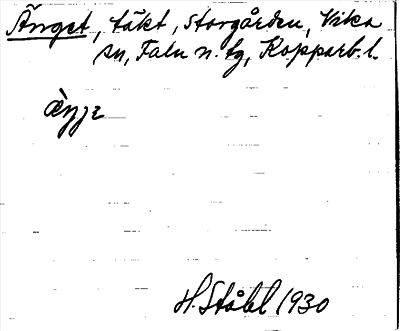 Änget, täkt, Storgården, Vika
sn, Falu n. tg, Kopparb. l.
H. Ståhl 1930